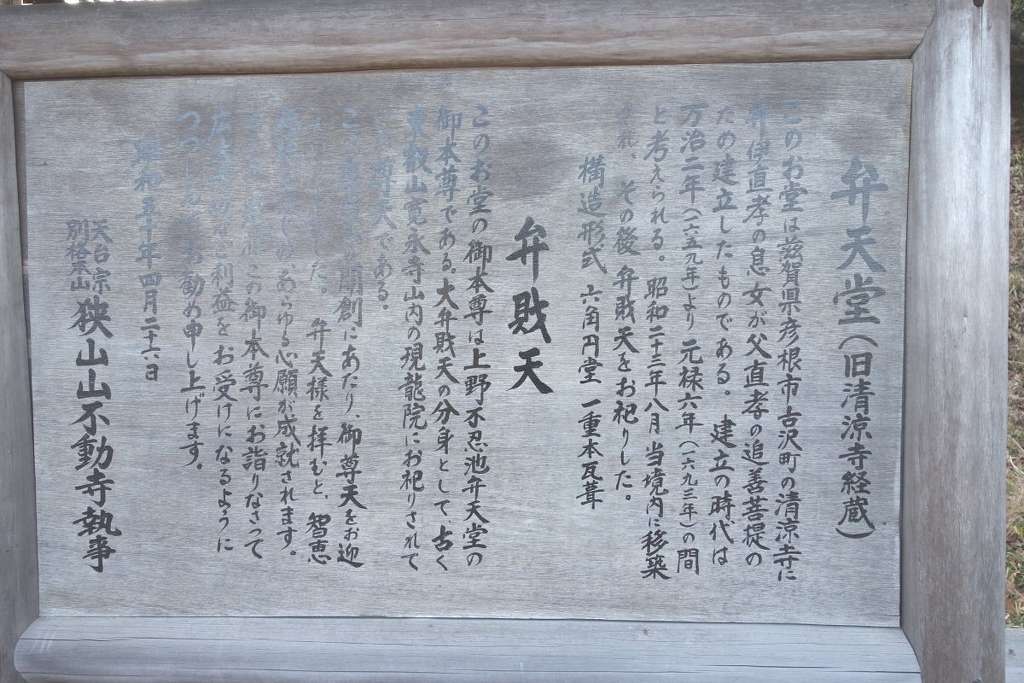 弁天堂（旧清涼寺経蔵）
このお堂は滋賀県彦根市古沢町の清涼寺に
井伊直孝の息女が父直孝の追善菩提の
ための建立したものである。 建立の時代は
万治二年（一六五九年）より元禄六年（一六九三年）の間
と考えられる。昭和二十三年八月 当境内に移築
され、その後 弁財天をお祀りした。
構造形式 六角円堂 一重本瓦葺
弁財天
このお堂の御本尊は上野不忍池弁天堂の
御本尊である。大弁財天の分身として、古く
東叡山寛永寺山内の現龍院にお祀りされて
尊天である。
開創にあたり、御尊天をお迎
した。 弁天様を拝むと、智恵
あらゆる心願が成就されます。
この御本尊にお詣りなさって
ご利益をお受けになるように
お勧め申し上げます。
昭和五十年四月二十六日
天台宗
別格本山
狭山山不動寺執事